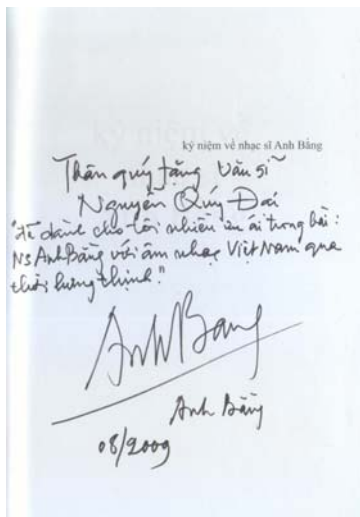 kỷ niệm về nhạc sĩ Anh Bằng
Thân quý tặng Văn sĩ
Nguyễn Quý Đại
"đã dành cho tôi nhiều ưu ái trong bài :
NS Anh Bằng với âm nhạc Việt Nam qua
thời hưng thịnh."
Anh Bang
Anh Bằng
08/2009